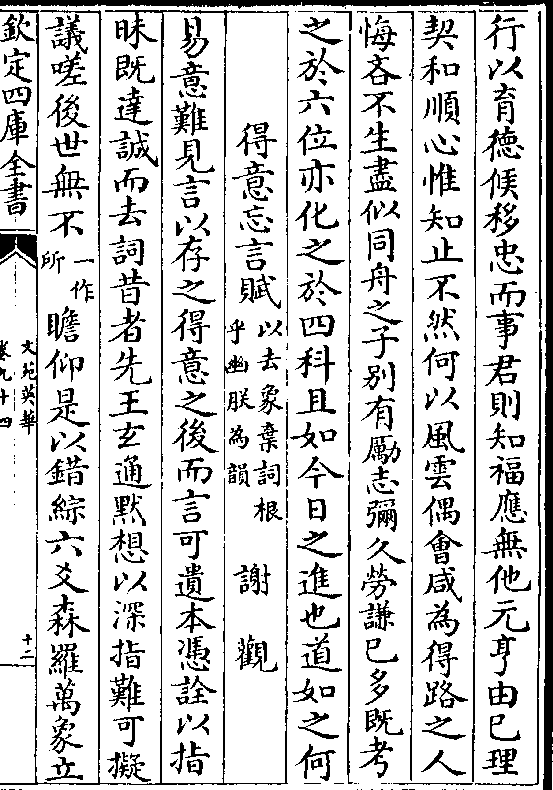 行以育德候移忠而事君則知福應無他元亨由已理
契和順心惟知止不然何以風雲偶會咸為得路之人
悔吝不生盡似同舟之子別有勵志彌久勞謙已多既考
之於六位亦化之於四科且如今日之進也道如之何
得意忘言賦以去象棄詞根乎幽朕為韻 謝觀
易意難見言以存之得意之後而言可遺本憑詮以指
昧既達誠而去詞昔者先王玄通默想以深指難可擬
議嗟後世無不一作所瞻仰是以錯綜六爻森羅萬象立
欽定四庫全書
文苑英華
卷九十四
十二